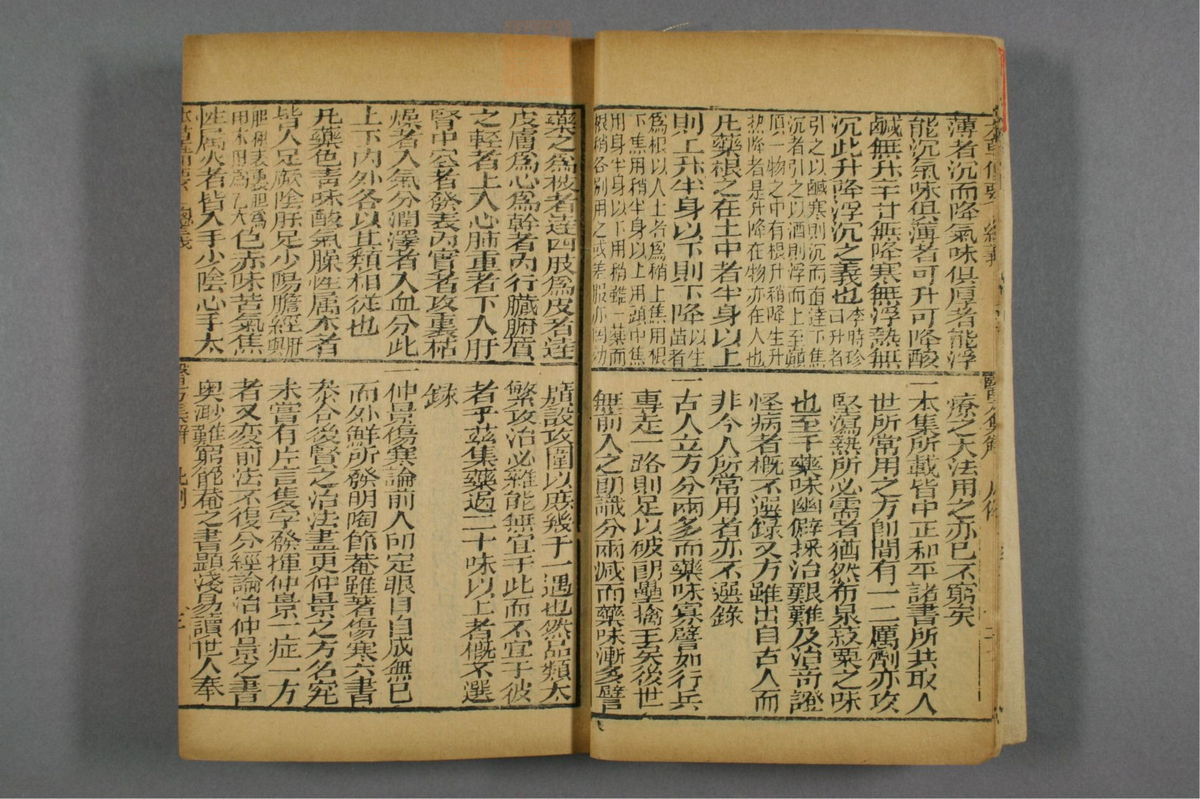 薄者沉而降氣味俱厚者能浮
能沉氣味俱薄者可升可降酸
鹹無升辛甘無降寒無浮熱無
沉此升降浮沉之義也李時珍曰升者
引之以鹹寒則沉而直達下焦
沉者引之以酒則浮而上至顛
頂一物之中有根升稍降生升
熟降者是升降在物亦在人也
凡藥根之在土中者半身以上
則上升半身以下則下降以生苗者
為根以入土者為稍上焦用根
下焦用稍半身以上用頭中焦
用身半身以下用稍雖一藥而
根稍各別用之或差服亦罔効
療之大法用之亦已不窮矣
一本集所載皆中正和平諸書所共取人
世所常用之方即間有一二厲劑亦攻
堅瀉熱所必需者猶然布帛菽粟之味
也至于藥味幽僻採治艱難及治奇證
怪病者概不選錄又方雖出自古人而
非今人所常用者亦不選錄
一古人立方分兩多而藥味寡譬如行兵
專走一路則足以破壘擒王矣後世
無前人之朗識分兩減而藥味漸多譬
藥之為枝者達四肢為皮者達
皮膚為心為幹者內行臟腑質
之輕者上入心肺重者下入肝
腎中空者發表內實者攻裏枯
燥者入氣分潤澤者入血分此
上下內外各以其類相從也
凡藥色青味酸氣臊性属木者
皆入足厥陰肝足少陽膽經肝
色赤味苦氣焦
性属火者皆入手少陰心手太
廣設攻圍以庶幾于一遇也然品類太
繁攻治必雜能無宜于此而不宜于彼
者乎茲集藥過二十味以上者概不選
錄
一仲景傷寒論前人印定眼目自成無已
而外鮮所發明陶節菴雖著傷寒六書
參合後賢之治法盡更仲景之方名究
未嘗有片言隻字發揮仲景一症一方
者又變前法不復分經論治仲景之書
奧渺難窮節菴之書顯淺易讀世人奉
本草備要 總義
醫方集解 凡例